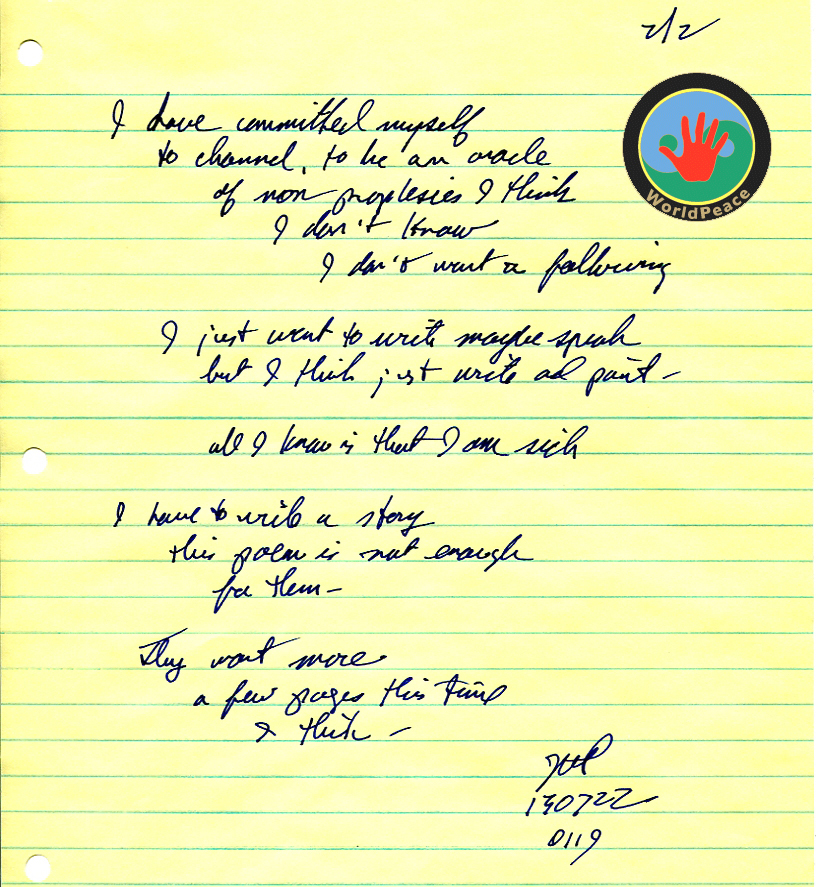 2/2
WorldPeace
I have committed myself
to channel, to be an oracle
of non prophesies I think
I don't know
I don't want a following
I just want to write maybe speak
but I think just write ad paint -
all I know is that I am sick
I have to write a story
this poem is not enough
for them -
They want more
a few pages this time
I think -
130722
0119